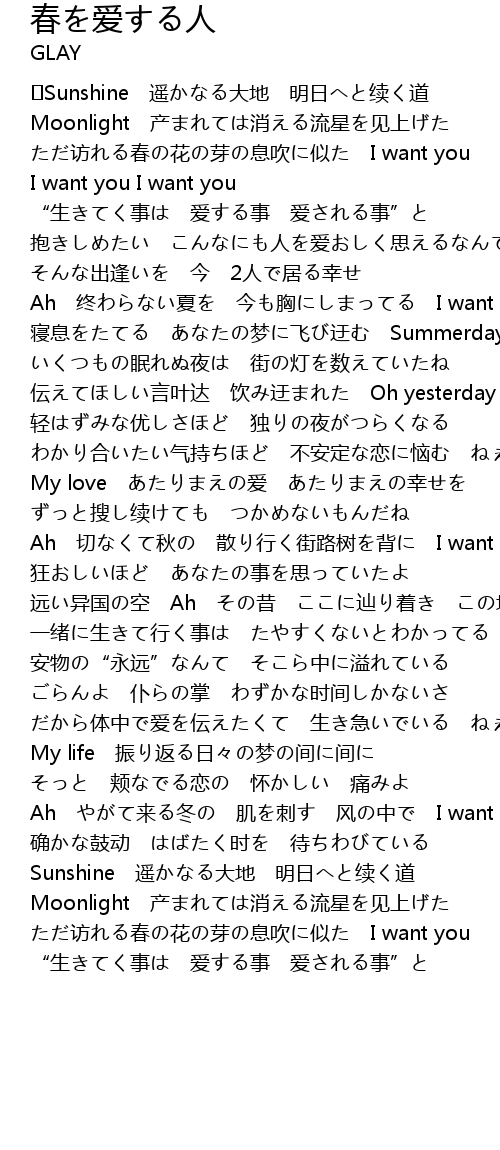 春を爱する人
GLAY
Sunshine　遥かなる大地　明日へと续く道
Moonlight　产まれては消える流星を见上げた
ただ访れる春の花の芽の息吹に似た　I want you
I want you I want you
“生きてく事は　爱する事　爱される事”と
抱きしめたい　こんなにも人を爱おしく思えるなんて
そんな出逢いを　今　2人で居る幸せ
Ah　终わらない夏を　今も胸にしまってる　I want
寝息をたてる　あなたの梦に飞び迂む　Summerday
いくつもの眠れぬ夜は　街の灯を数えていたね
伝えてほしい言叶达　饮み迂まれた　Oh yesterday
轻はずみな优しさほど　独りの夜がつらくなる
わかり合いたい气持ちほど　不安定な恋に恼む　ねぇ
My love　あたりまえの爱　あたりまえの幸せを
ずっと搜し续けても　つかめないもんだね
Ah　切なくて秋の　散り行く街路树を背に　I want
狂おしいほど　あなたの事を思っていたよ
远い异国の空　Ah　その昔　ここに辿り着き　この
一绪に生きて行く事は　たやすくないとわかってる
安物の“永远”なんて　そこら中に溢れている
ごらんよ　仆らの掌　わずかな时间しかないさ
だから体中で爱を伝えたくて　生き急いでいる　ねぇ
My life　振り返る日々の梦の间に间に
そっと　颊なでる恋の　怀かしい　痛みよ
Ah　やがて来る冬の　肌を刺す　风の中で　I want
确かな鼓动　はばたく时を　待ちわびている
Sunshine　遥かなる大地　明日へと续く道
Moonlight　产まれては消える流星を见上げた
ただ访れる春の花の芽の息吹に似た　I want you
“生きてく事は　爱する事　爱される事”と